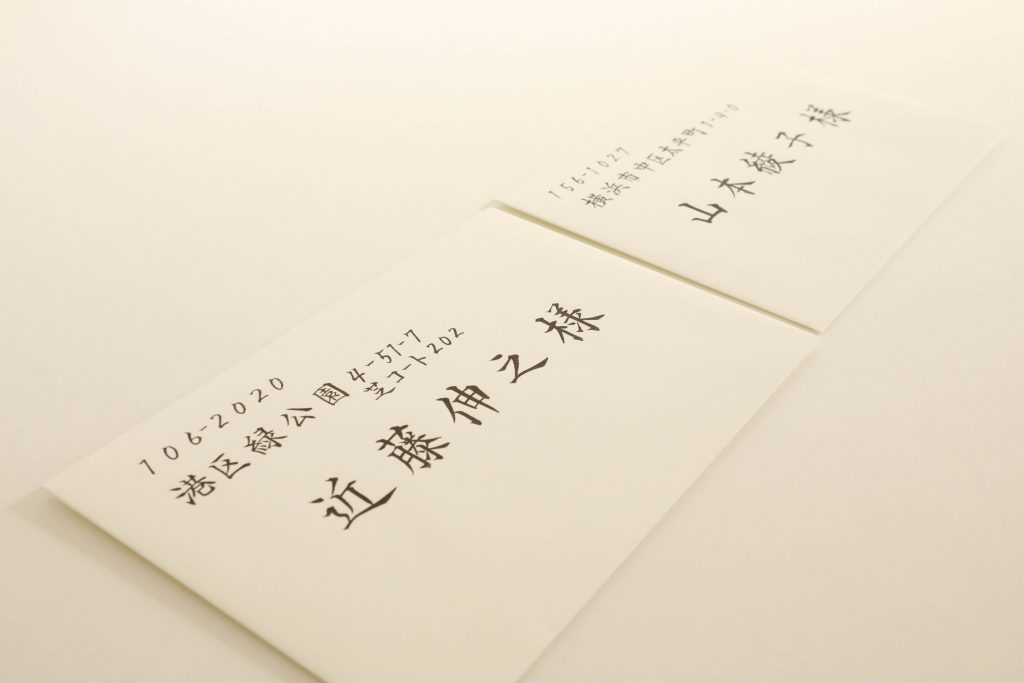 106-2020
港区緑公園4-57-7
芝コート202
近藤伸之様
156-1027
横浜市中区太平町7-8-0
山本綾子様